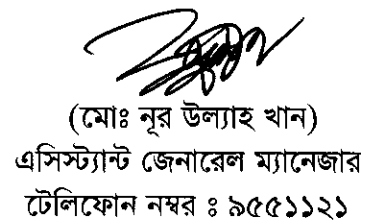 (মোঃ নূর উল্যাহ খান)
এসিস্ট্যান্ট জেনারেল ম্যানেজার
টেলিফোন নম্বর ঃ ৯৫৫১১২১